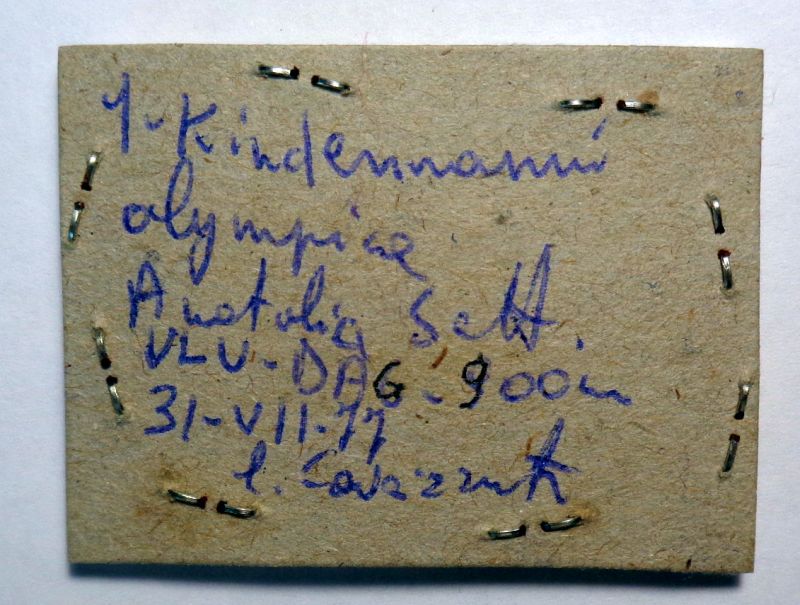 1-Kindermanni
olympica
Anatolia Sett.
ULU-DAG-900m
31-VII-77
l. Cavazzuti